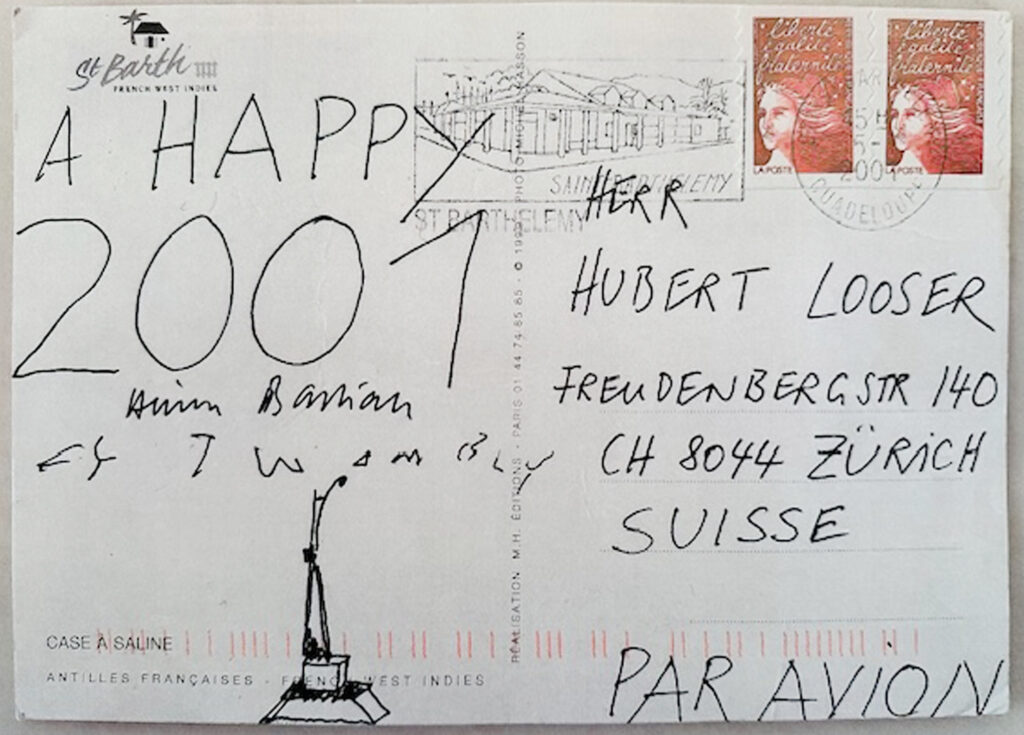 St Barth
FRENCH WEST INDIES
A HAPPY
2001
Heiner Bastian
CY TWOMBLY
SAINT BARTHELEMY
ST BARTHELEMY
liberté
égalité
fraternité
LA POSTE
liberté
égalité
fraternité
LA POSTE
2001
GUADELOUPE
HERR
HUBERT LOOSER
FREUDENBERGSTR 140
CH 8044 ZÜRICH
SUISSE
PAR AVION
CASE À SALINE
ANTILLES FRANÇAISES - FRENCH WEST INDIES
RÉALISATION M.H. ÉDITIONS - PARIS 01 44 74 85 85 - © 1999